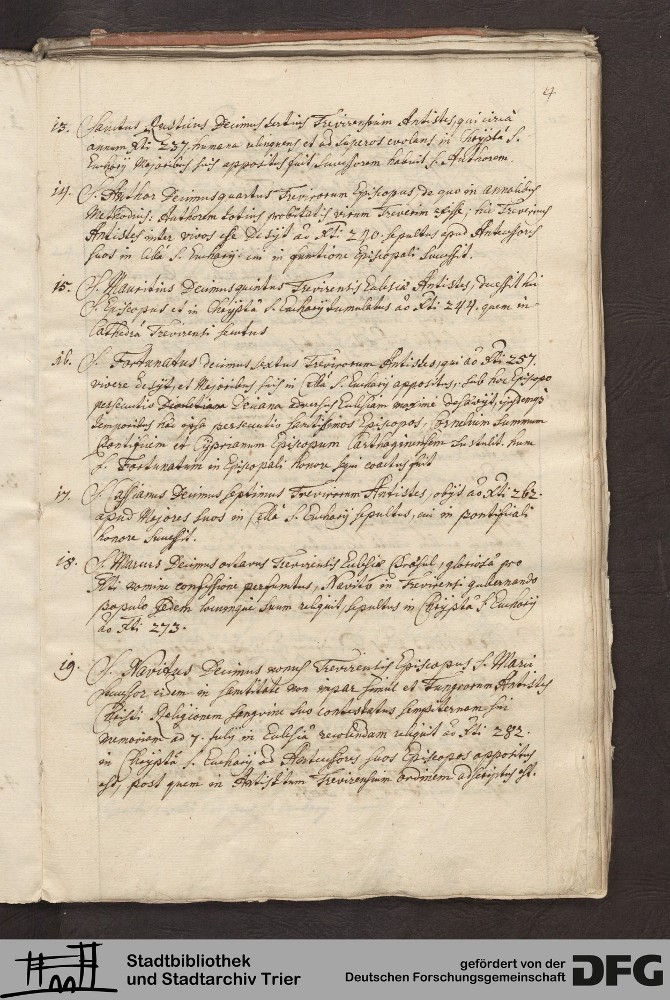 4.
13. Sanctus Rusticus Decimus tertius Trevirensium Antistes, qui circa
annum Xti 237. humana relinquens et ad superos evolans, in Chrÿpta S.
Eucharÿ Majoribus suis appositus fuit successorem habuit S. Authorem.
14. S. Author Decimusquartus Trevirorum Episcopus de quo in annalibus
Methodius: Authorem totius probitatis virum Treverim; hic Trevirensis
Antistes inter vivos esse desÿt ao Xti 240. sepultus apud Antecessores
suos in Cella S. Eucharÿ, cui in functione Episcopali successit.
15. S. Mauritius Decimusquintus Trevirensis Ecclesiæ Antistes, decessit hic
S. Episcopus et in Chrÿpta S. Eucharÿ tumulatus ao Xti 244. quem in
Cathedra Trevirensi secutus
16. S. Fortunatus decimus sextus Trevirorum Antistes, qui ao Xti 257.
vivere desÿt, et Majoribus suis in Cella S. Eucharÿ appositus, sub hoc Episcopo
persecutio Deciana adversus Ecclesiam maxime
temporibus hæc ipsa persecutio sanctissimos Episcopos, Cornelium summum
Pontificem et Cyprianum Episcopum Carthaginensem sustulit. hunc
S. Fortunatum in Episcopali honore sequi coactus fuit
17. S. Cassianus Decimus septimus Trevirorum Antistes, obÿt ao Xti 262.
apud Majores suos in Cella S. Eucharÿ sepultus, cui in pontificali
honore successit.
18. S. Marcus Decimus octavus Trevirensis Ecclesiæ Præsul, gloriosa pro
Xti nomine confessione perfunctus, Navito in Trevirensi gubernando
populo sedem locumque suum reliquit, sepultus in Chrÿpta S. Eucharÿ
ao Xti 273.
19. S. Navitus Decimus nonus Trevirensis Episcopus S. Marci
successor eidem in sanctitate non impar, simul et Tungrorum Antistes
Christi Religionem sanguine suo contestatus sempiternam sui
memoriam ad 7. Julÿ in Ecclesia recolendam reliquit ao Xti 282.
in Chrÿpta S. Eucharÿ ad Antecessores suos Episcopos appositus
est, post quem in Antistitum Trevirensium ordinem adscriptus est.
Stadtbibliothek
und Stadtarchiv Trier
gefördert von der
Deutschen Forschungsgemeinschaft
DFG